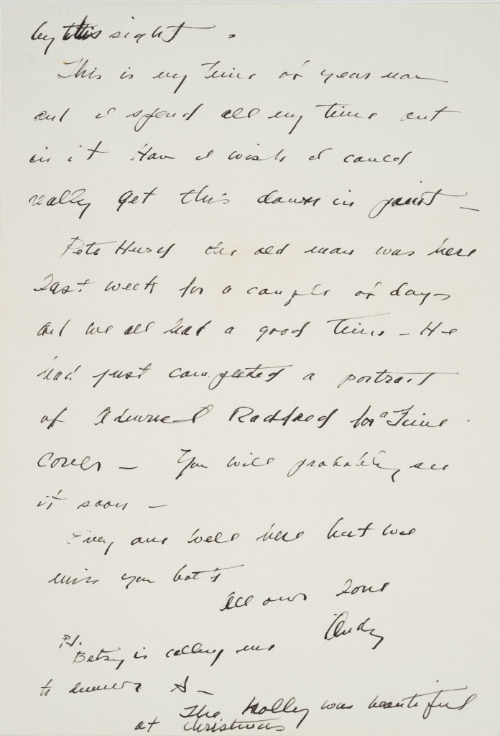 by this sight.
This is my time of year now
and I spend all my time out
in it How I wish I could
really get this down in paint —
Pete Hurd the old man was here
last week for a couple of days
and we all had a good time — He
had just completed a portrait
of Admiral Radford for a Time
cover — You will probably see
it soon —
Every one well here but we
miss you both
All our love
Andy
P.S.
Betsy is calling me
to dinner
The Holly was beautiful
at Christmas